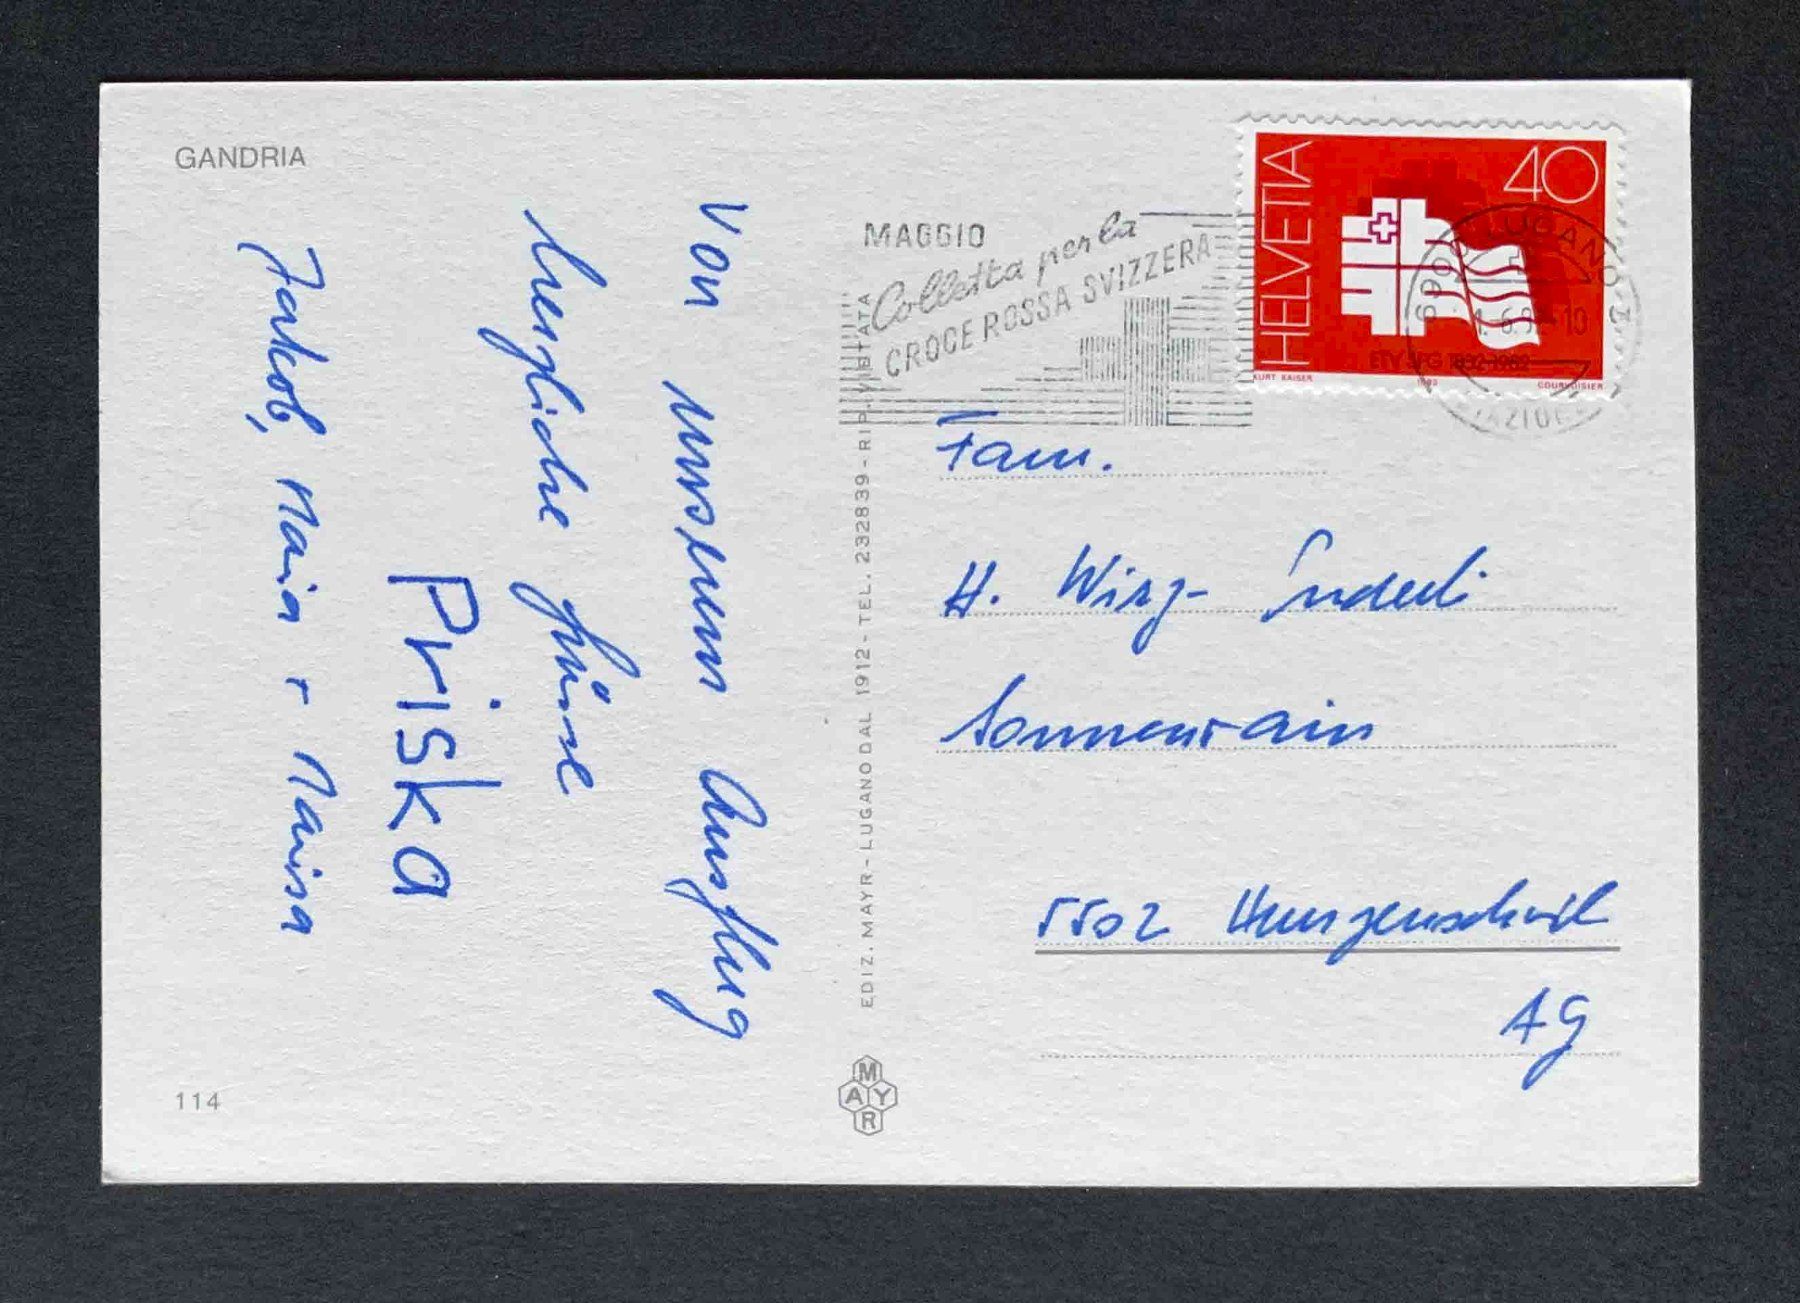 GANDRIA
Von unserem Ausflug
herzliche Grüsse
Priska
Jakob, Maria + Marisa
114
EDIZ. MAYR - LUGANO DAL 1912 - TEL. 232839 - RIP. VIETATA
MAYR
MAGGIO
Colletta per la
CROCE ROSSA SVIZZERA
HELVETIA
40
ETV SFG 1832-1982
KURT KAISER 1982 COURVOISIER
LUGANO 1
6900
Fam.
H. Wirz-
Sonnenrain
5502 Hunzenschwil
AG